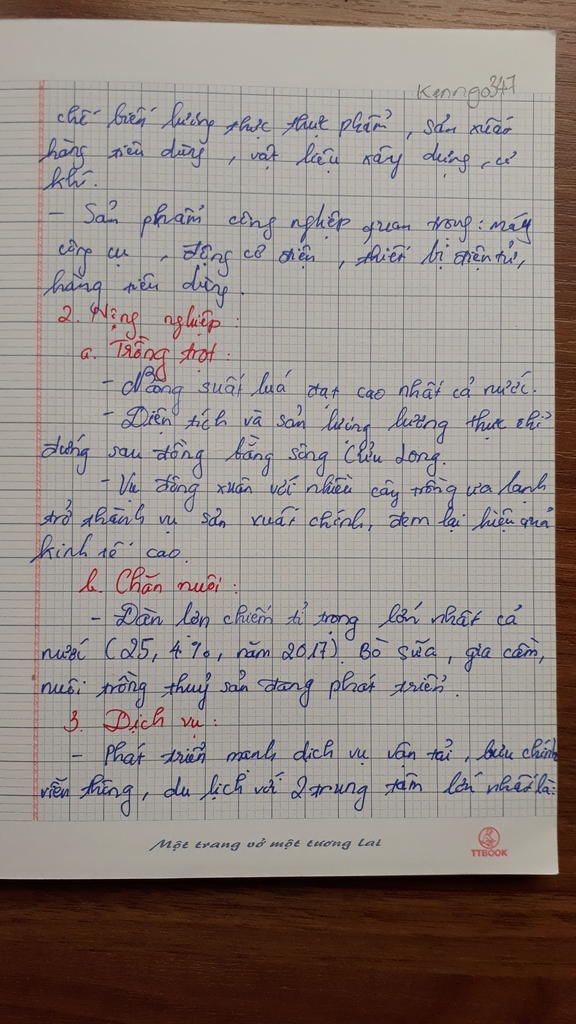 Kenngo347
chế biến lương thực thực phẩm, sản xuất
hàng tiêu dùng, vật liệu xây dựng, cơ
khí.
- Sản phẩm công nghiệp quan trọng: máy
công cụ, động cơ điện, thiết bị điện tử,
hàng tiêu dùng.
2. Nông nghiệp:
a. Trồng trọt:
- Năng suất luá đạt cao nhất cả nước.
- Diện tích và sản lượng lương thực chỉ
đứng sau đồng bằng sông Cửu Long.
- Vụ đông xuân với nhiều cây trồng ưa lạnh
trở thành vụ sản xuất chính, đem lại hiệu quả
kinh tế cao.
b. Chăn nuôi:
- Đàn lợn chiếm tỉ trọng lớn nhất cả
nước (25,4%, năm 2017). Bò sữa, gia cầm,
nuôi trồng thuỷ sản đang phát triển.
3. Dịch vụ:
- Phát triển mạnh dịch vụ vận tải, bưu chính
viễn thông, du lịch với 2 trung tâm lớn nhất là:
Một trang vở một tương lai
TTBOOK